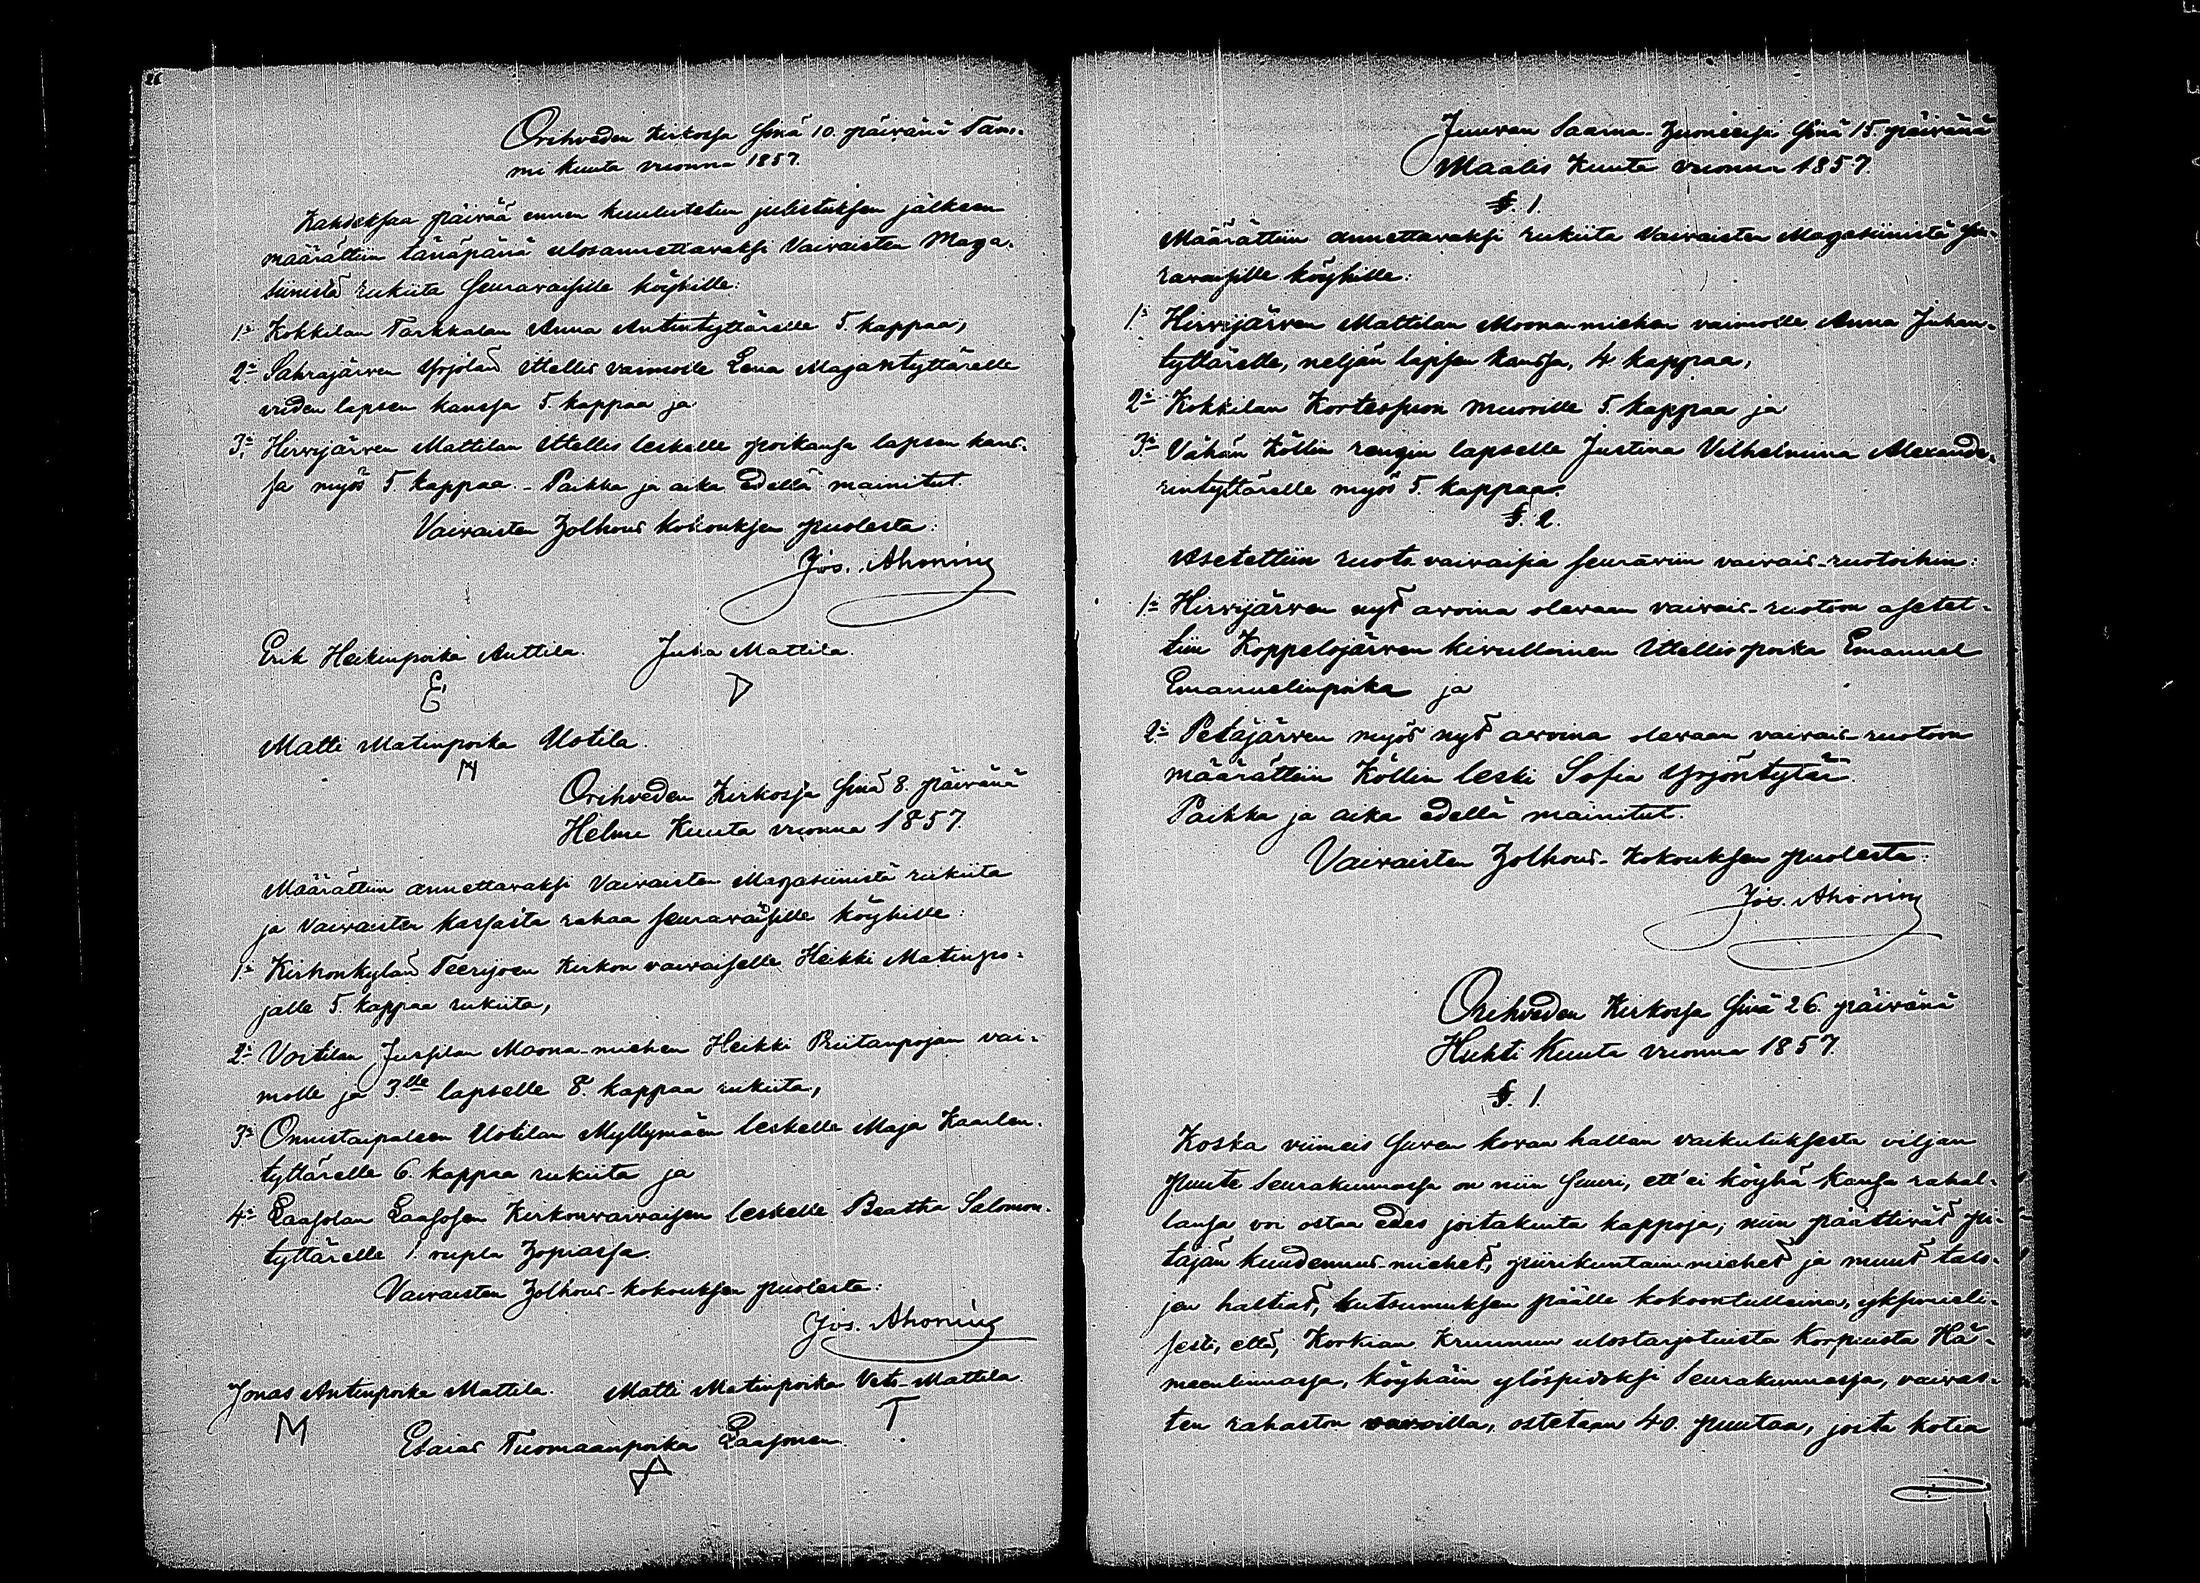 Orihveden Kirkossa sinä 10. päivänä Tam-
mi kuuta vuonna 1857.
Kahdeksaa päivää ennen kuulutetun julistuksen jälkeen
määrättiin tänäpänä ulosannettavaksi Vaivaisten Maga-
siinista rukiita seuraavaisille köyhille:
1:o Kokkilan Tarkkalan Anna Antintyttärelle 5. kappaa,
2:o Sahrajärven Yrjölän Ittellis vaimolle Lena Majantyttärelle
viiden lapsen kanssa 5. kappaa ja
3:o Hirvijärven Mattilan Ittellis leskelle poikansa lapsen kans-
sa myös 5. kappaa. - Paikka ja aika edellä mainitut.
Vaivaisten Holhous kokouksen puolesta:
Jos. Ahoning
Erik Heikinpoika Anttila. Juha Mattila.
E
Matti Matinpoika Uotila.
M
Orihveden Kirkossa sinä 8. päivänä
Helmi Kuuta vuonna 1857.
Määrättiin annettavaksi Vaivaisten Magasiinista rukiita
ja Vaivaisten kassasta rahaa seuraavaisille köyhille:
1:o Kirkonkylän Teerijoen Kirkon vaivaiselle Heikki Matinpo-
jalle 5. kappaa rukiita,
2:o Voitilan Jussilan Moona-miehen Heikki Riitanpojan vai-
molle ja 3.lle lapselle 8. kappaa rukiita,
3:o Onnistaipaleen Uotilan Myllymäen leskelle Maja Kaarlen-
tyttärelle 6. kappaa rukiita ja
4:o Laasolan Laasosen Kirkonvaivaisen leskelle Beatha Salomon-
tyttärelle 1. rupla Hopiassa.
Vaivaisten Holhous-kokouksen puolesta:
Jos. Ahoning
Jonas Antinpoika Mattila. Matti Matinpoika Veti-Mattila
M T
Esaias Tuomaanpoika Laasonen.
Juuvan Saarna-Huoneessa sinä 15. päivänä
Maalis Kuuta vuonna 1857.
§. 1.
Määrättiin annettavaksi rukiita Vaivaisten Magasiinista seu-
raavaisille köyhille:
1:o Hirvijärven Mattilan Moona-miehen vaimolle Anna Juhan-
tyttärelle, neljän lapsen kanssa, 4. kappaa,
2:o Kokkilan Kortessuon muorille 5. kappaa ja
3:o Vähän Köllin rengin lapselle Justina Vilhelmina Alexande-
rintyttärelle myös 5. kappaa.
§. 2.
Asetettiin ruoti vaivaisia seuraviin vaivais-ruotoihin:
1:o Hirvijärven nyt avoina olevaan vaivais-ruotoon asetet-
tiin Koppelojärven kivulloinen Ittellispoika Emanuel
Emanuelinpoika ja
2:o Petäjärven myös nyt avoina olevaan vaivais-ruotoon
määrättiin Köllin leski Sofia Yrjöntytär.
Paikka ja aika edellä mainitut.
Vaivaisten Holhous-Kokouksen puolesta:
Jos. Ahoning
Orihveden Kirkossa sinä 26. päivänä
Huhti Kuuta vuonna 1857.
§. 1.
Koska viimeis suven kovan hallan vaikutuksesta viljan
puute Seurakunnassa on niin suuri, ett'ei köyhä kansa rahal-
lansa voi ostaa edes joitakuita kappoja, niin päättivät pi-
täjän kuudennus-miehet, piirikuntain miehet ja muut talo-
jen haltiat, kutsumuksen päälle kokoontulleina, yksimieli-
sesti, että, Korkian Kruunun ulostarjotuista korpuista Hä-
meenlinnassa, köyhäin ylöspidoksi Seurakunnassa, vaivas-
ten rahaston varoilla, ostetaan 40. puutaa, joita kotia